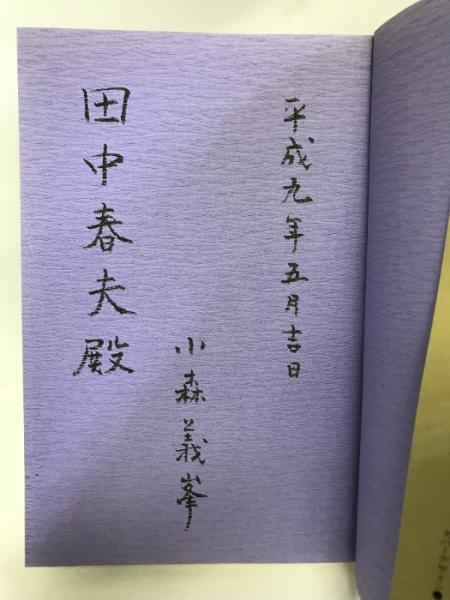 平成九年五月吉日
小森義峯
田中春夫殿